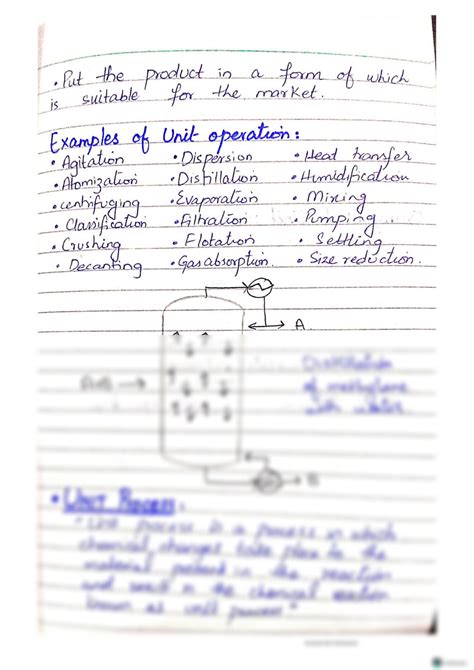 • Put the product in a form of which
is suitable for the market.
Examples of Unit operation:
• Agitation • Dispersion • Head transfer
• Atomization • Distillation • Humidification
• centrifuging • Evaporation • Mixing
• Classification • Filtration • Pumping.
• Crushing • Flotation • Settling
• Decanting • Gas absorption. • Size reduction.
A
A+B
Distillation
of
with water
B
• UNIT PROCESS:
"Unit process is a process in which
chemical changes take place to the
material present in the reaction
and result in the chemical reaction
known as unit process"